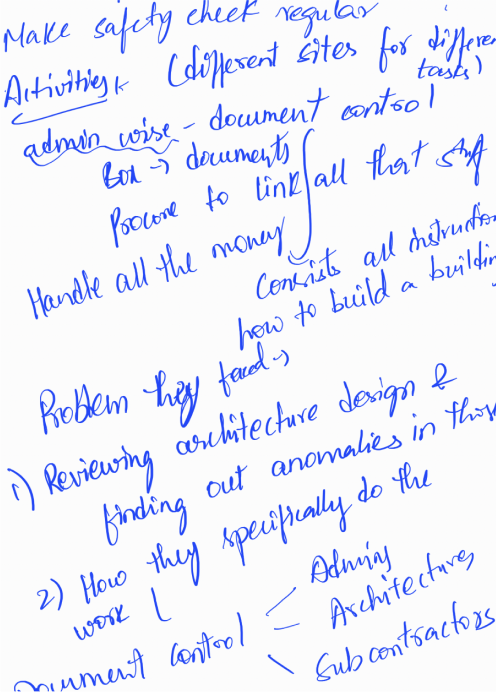 Make safety check regular
Activities (different sites for differen
tasks)
admin wise - document control
Box → documents
Procore to link all that stuff
Handle all the money
Consists all instruction
how to build a building
Problem they faced →
1) Reviewing architecture design &
finding out anomalies in those
2) How they specifically do the
work
Document control
Admins
Architectures
Subcontractors